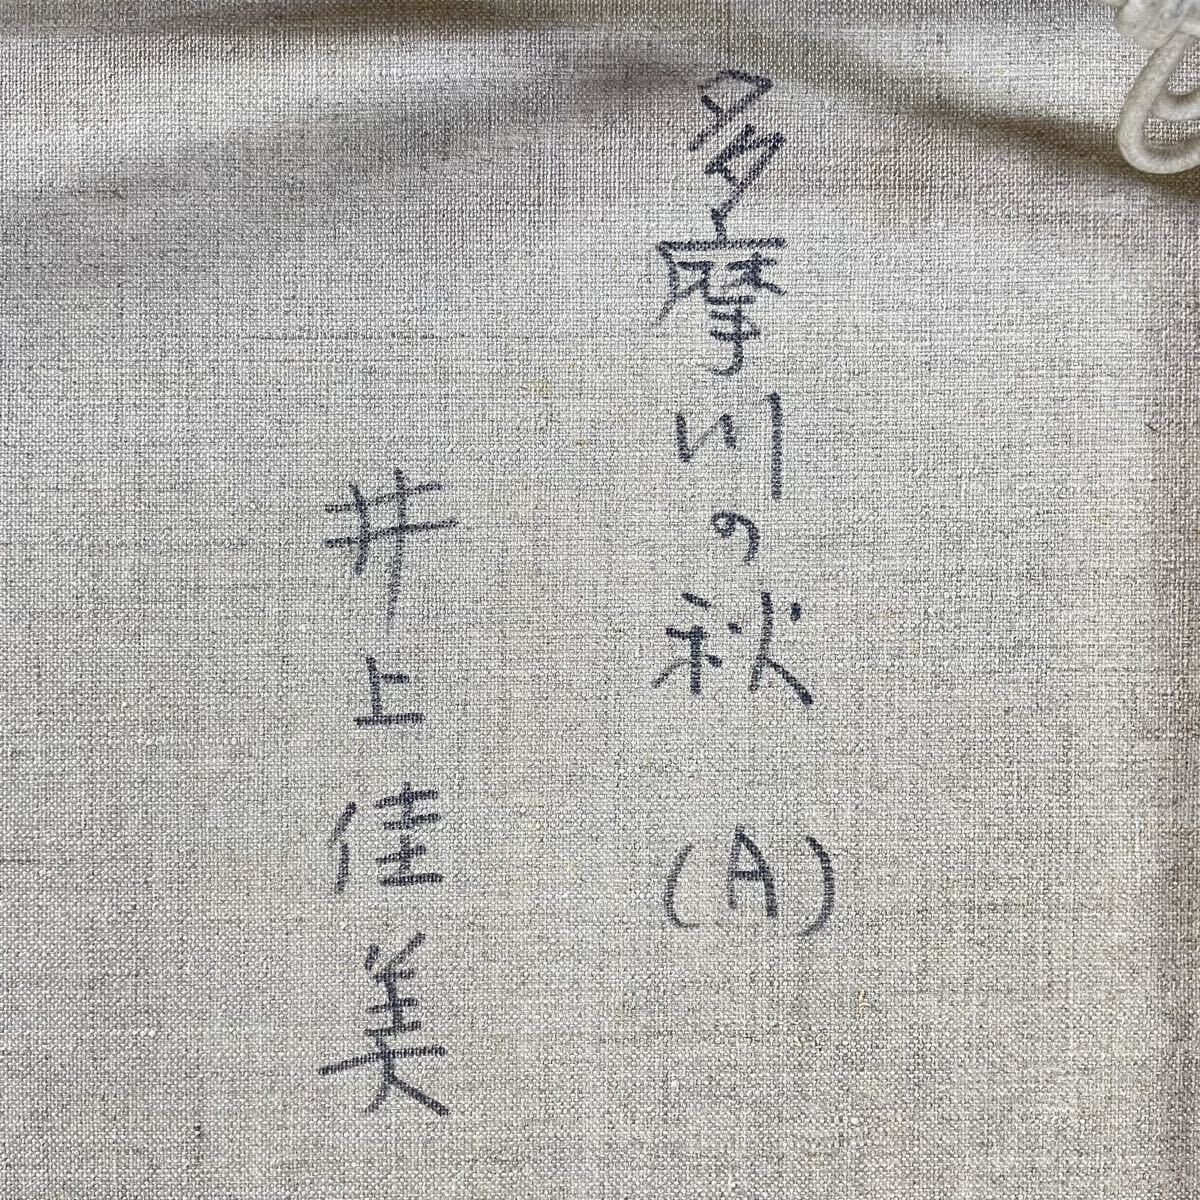 多摩川の秋 (A)
井上佳美